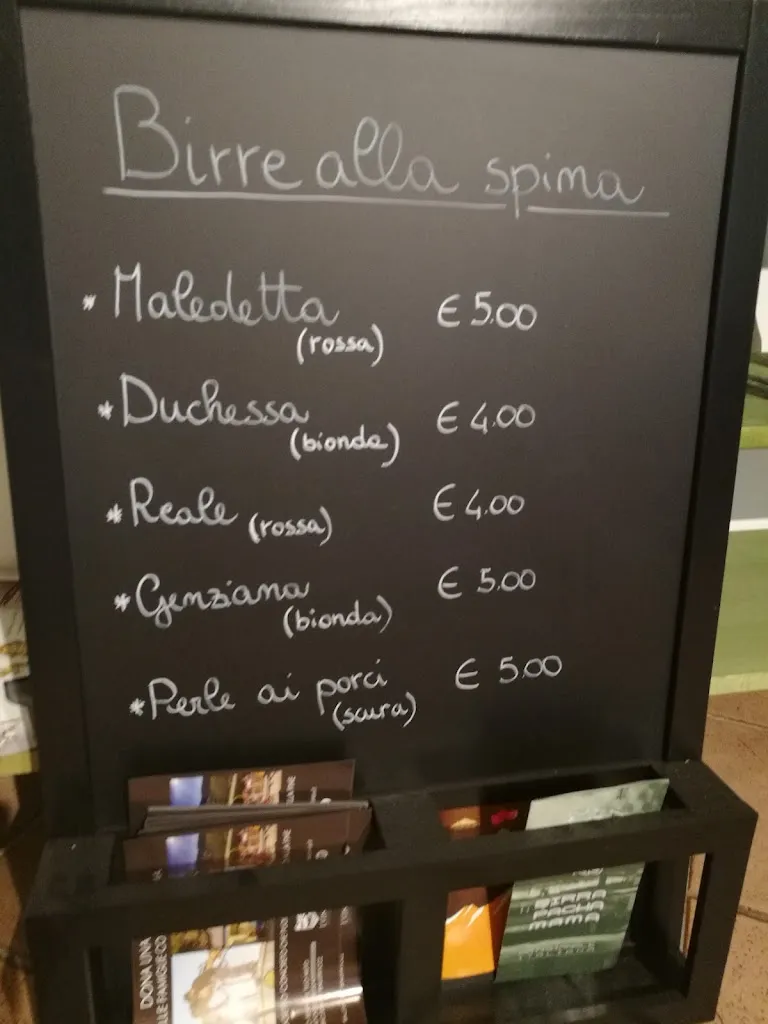 Birre alla spina
* Maledetta € 5.00
(rossa)
* Duchessa € 4.00
(bionda)
* Reale (rossa) € 4.00
* Genziana € 5.00
(bionda)
* Perle ai porci € 5.00
(scura)
DONA UNA
LLE FAMIGLIE CO
BIRRA
PACHA
MAMA